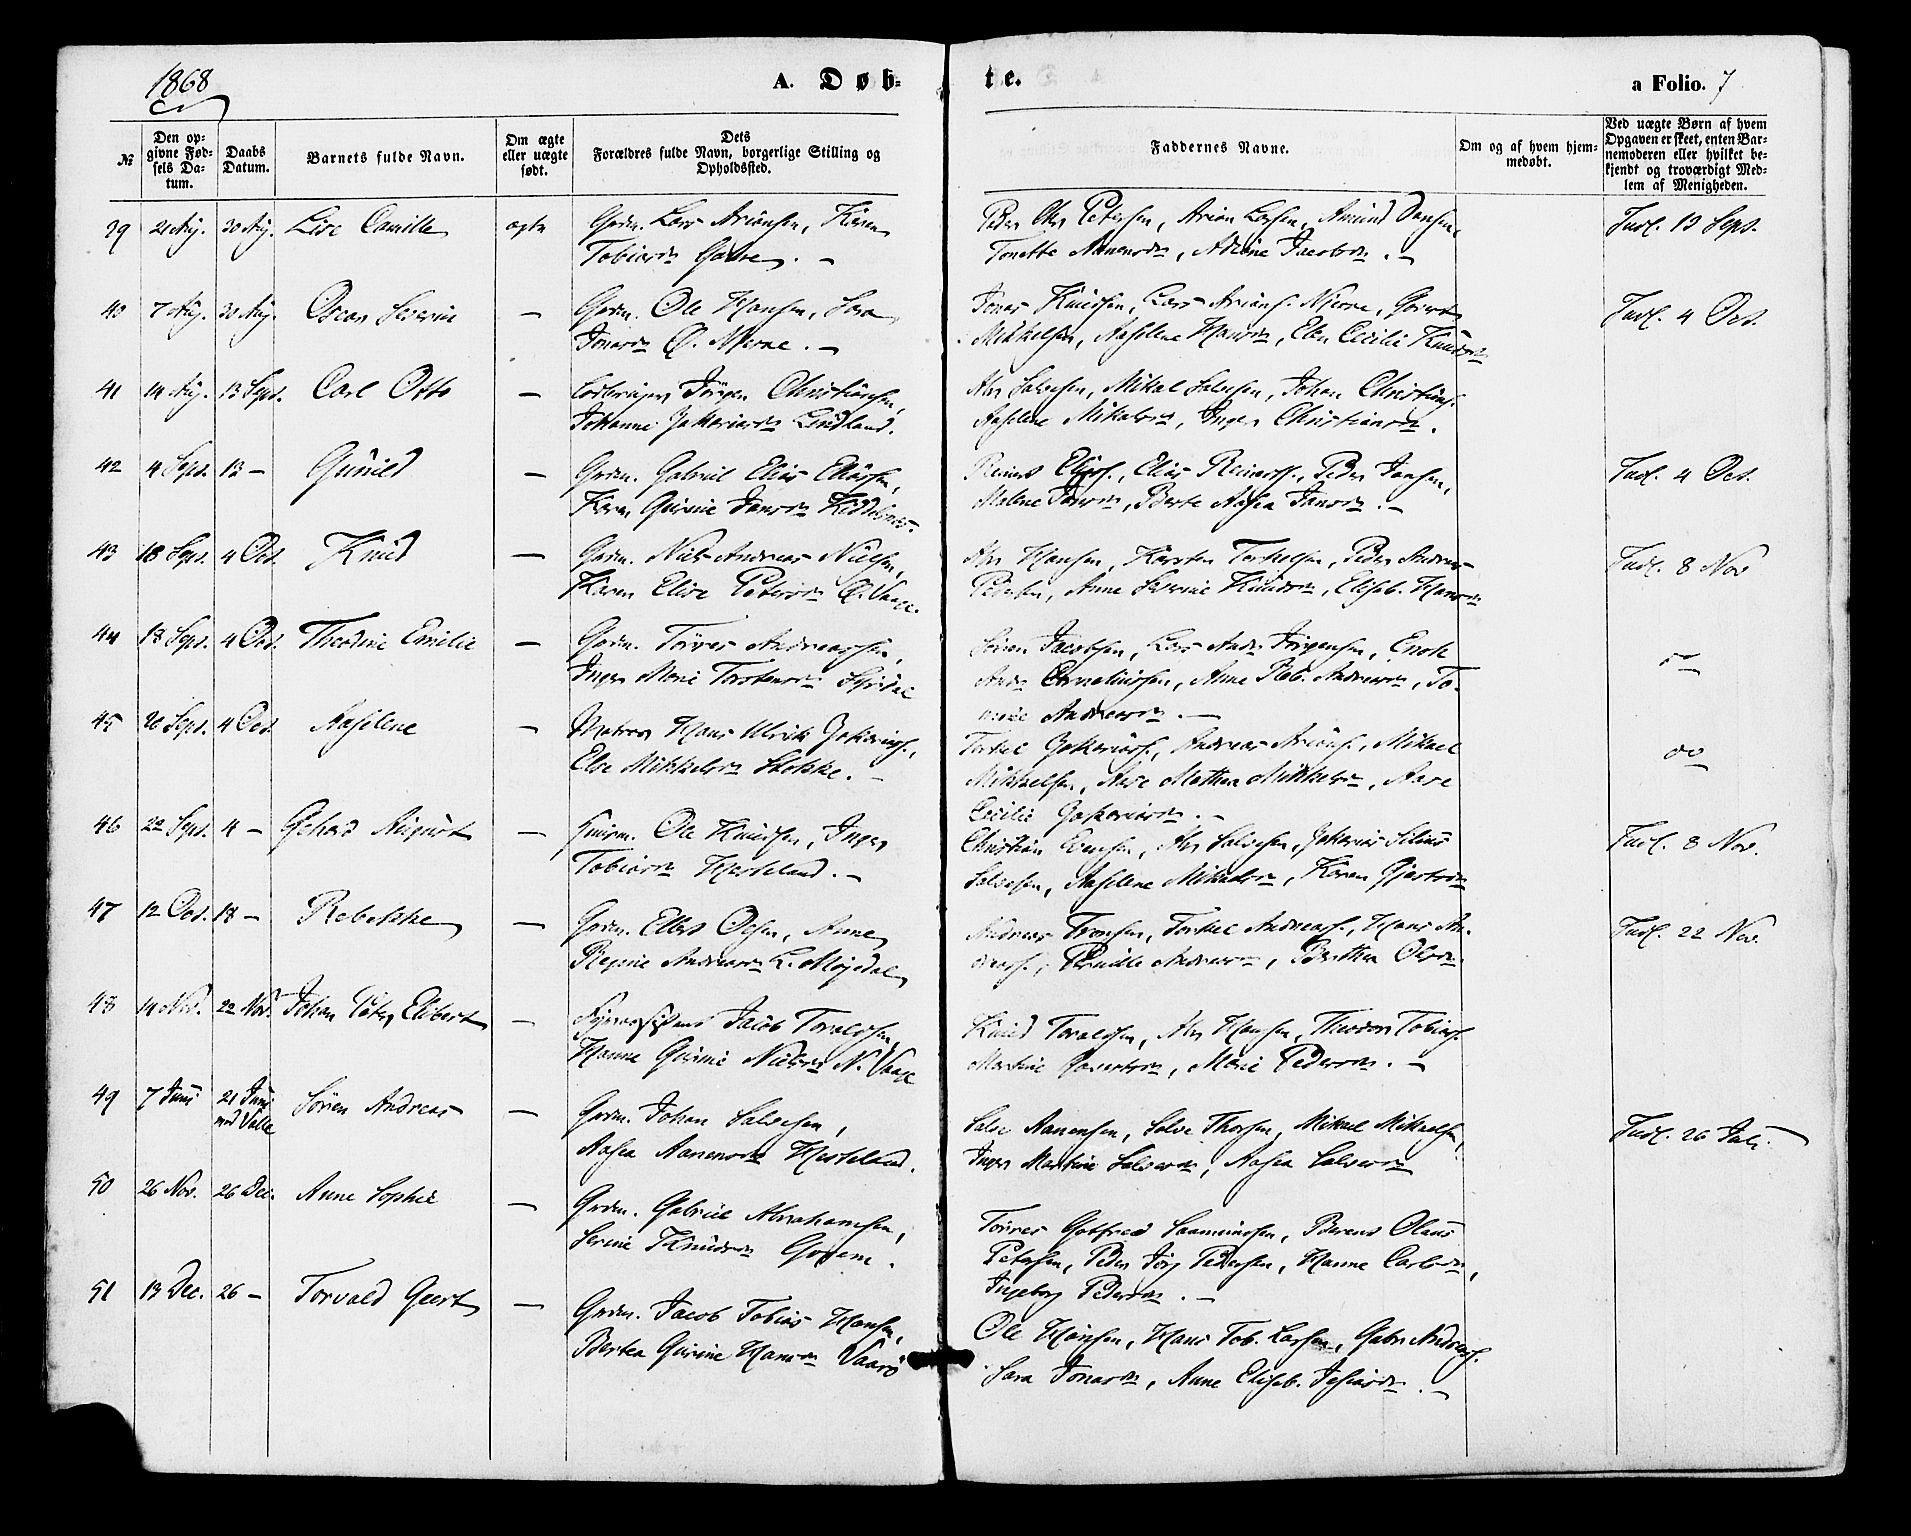 1868
A. Døb-
te.
a Folio. 7
№
Den op-
givne Fød-
sels Da-
tum.
Daabs
Datum.
Barnets fulde Navn.
Om ægte
eller uægte
født.
Dets
Forældres fulde Navn, borgerlige Stilling og
Opholdssted.
Faddernes Navne.
Om og af hvem hjem-
medøbt.
Ved uægte Børn af hvem
Opgaven er skeet, enten Bar-
nemoderen eller hvilket be-
kjendt og troværdigt Med-
lem af Menigheden.
39 21 Aug. 30 Aug. Camilla ægte Lars Ariansen, Karen
Tobiasdr
Peder Chr. Petersen, Arian Larsen, Amund
Tonette Aanensdr, Jacobsdr. —
Indl. 13 Sept.
40 7 Aug. 30 Aug. Oscar Severin — Ole Hansen, Sara
Jonasdr Ø. Njerve. —
Jonas Knudsen, Lars Arians. Njerve,
Mikkelsen, Aaselene Hansdr, Elen Cecilie Knudsdr
Indl. 4 Oct.
41 14 Aug. 13 Sept. Carl Otto — Jörgen Christiansen,
Johanne Zakariasdr Lindland.
Abr Salvesen, Mikal Salvesen, Johan Christians.
Aaselene Mikalsdr, Inger Christiansdr.
42 4 Sept. 13 — Gunild — Gabriel Elias Eliassen,
Karen Gurine Jansdr
Reinert Eliass., Elias Reinerts., Peder Jansen,
Malene Jansdr, Berte Aasea Jansdr. —
Indl. 4 Oct.
43 18 Sept. 4 Oct. Knud — Niels Andreas Nielsen,
Karen Elise Petersdr Ø. Vaage.
Abr Hansen, Karsten Terkelsen, Peder Andreas
Pedersen, Anne Severine Knudsdr, Elisab. Hansdr
Indl. 8 Nov
44 18 Sept. 4 Oct. Theodine Emilie — Törres Andreassen,
Inger Marie Torstensdr
Sören Jacobsen, Lars Andr Jörgensen, Enok
Andr Corneliussen, Anne Reb. Andreasdr, To-
Andreasdr. —
45 20 Sept. 4 Oct. Aaselene — Matros Hans Ulrik Zakarias.,
Else Mikkelsdr Stokke. —
Terkel Zakarias., Andreas Arians., Mikael
Mikkelsen, Mathea Mikkelsdr, Aase
Cecilie Zakariasdr. —
46 22 Sept. 4 — Gehard August — Ole Knudsen, Inger
Tobiasdr Hesteland. —
Christian Evensen, Abr Salvesen, Zakarias
Salvesen, Aaselene Mikalsdr, Karen Gjertsdr
Indl. 8 Nov.
47 12 Oct. 18 — Rebekke — Ellert Olsen, Anne
Regine Andreasdr L. Möjedal
Andreas Tronsen, Terkel Andreass., Hans An-
dreass., Pernille Andreasdr, Berthea Olsdr
Indl. 22 Nov.
48 14 Nov. 22 Nov. Johan Peter Elibert — Jacob Toralsen,
Hanne Gurine Nielsdr N. Vaage
Knud Toralsen, Abr Hansen, Theodor Tobias.
Martine Marie Pedersdr. —
49 7 Juni 21 Juni Sören Andreas — Johan Salvesen,
ved Valle
Aasea Aanensdr Hesteland.
Salve Aanensen, Salve Thorsen, Mikael Mikkelsen,
Inger Martine Salvesdr, Aasea Salvesdr
Indl. 26 Juli.
50 26 Nov. 26 Dec. Anne Sophie — Gabriel Abrahamsen,
Serine Knudsdr
Törres Gotfred Saamundsen, Berent Olaus
Petersen, Peder Jörg Pedersen, Hanne Carlsdr,
Ingeborg Pedersdr. —
51 13 Dec. 26 — Torvald Geert — Jacob Tobias Hansen,
Bertea Gurine Hansdr Vaarö
Ole Hansen, Hans Tob. Larsen, Gabr Andreas.
Sara Jonasdr, Anne Elisab. —